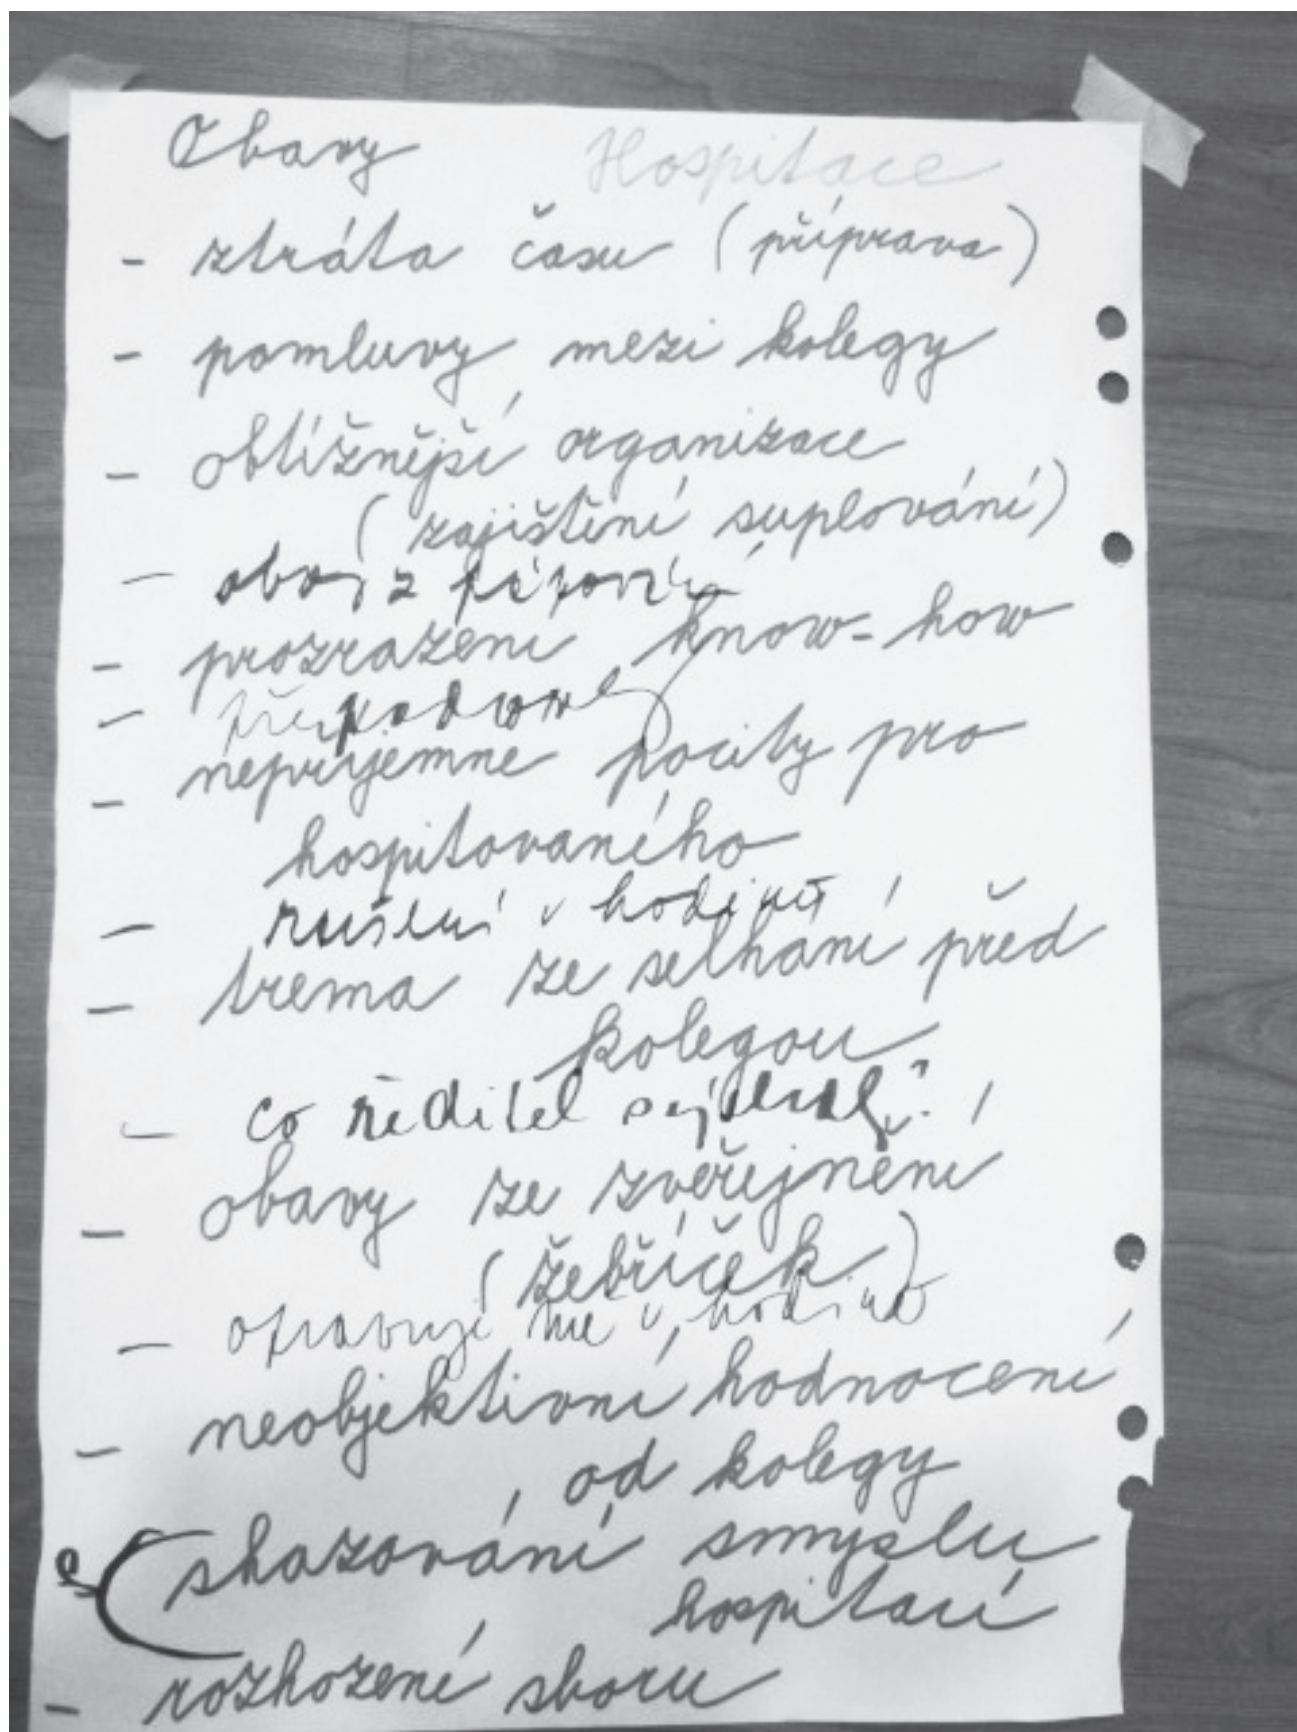 Obavy Hospitace
- ztráta času (příprava)
- pomluvy mezi kolegy
- obtížnější organizace
(zajištění suplování)
- z
- prozrazení know-how
-
- nepříjemné pocity pro
hospitovaného
- rušení v hodině
- trema ze selhání před
kolegou
- co ředitel
- obavy ze zveřejnění
(žebříček)
- opravuje mě v hodině
- neobjektivní hodnocení
od kolegy
shazování smyslu
hospitací
- rozhození sboru